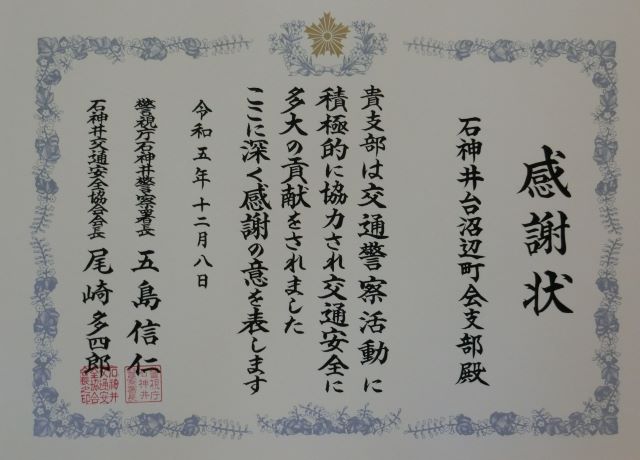 感謝状
石神井台沼辺町会支部殿
貴支部は交通警察活動に
積極的に協力され交通安全に
多大の貢献をされました
ここに深く感謝の意を表します
令和五年十二月八日
警視庁石神井警察署長 五島信仁
石神井交通安全協会会長 尾崎多四郎